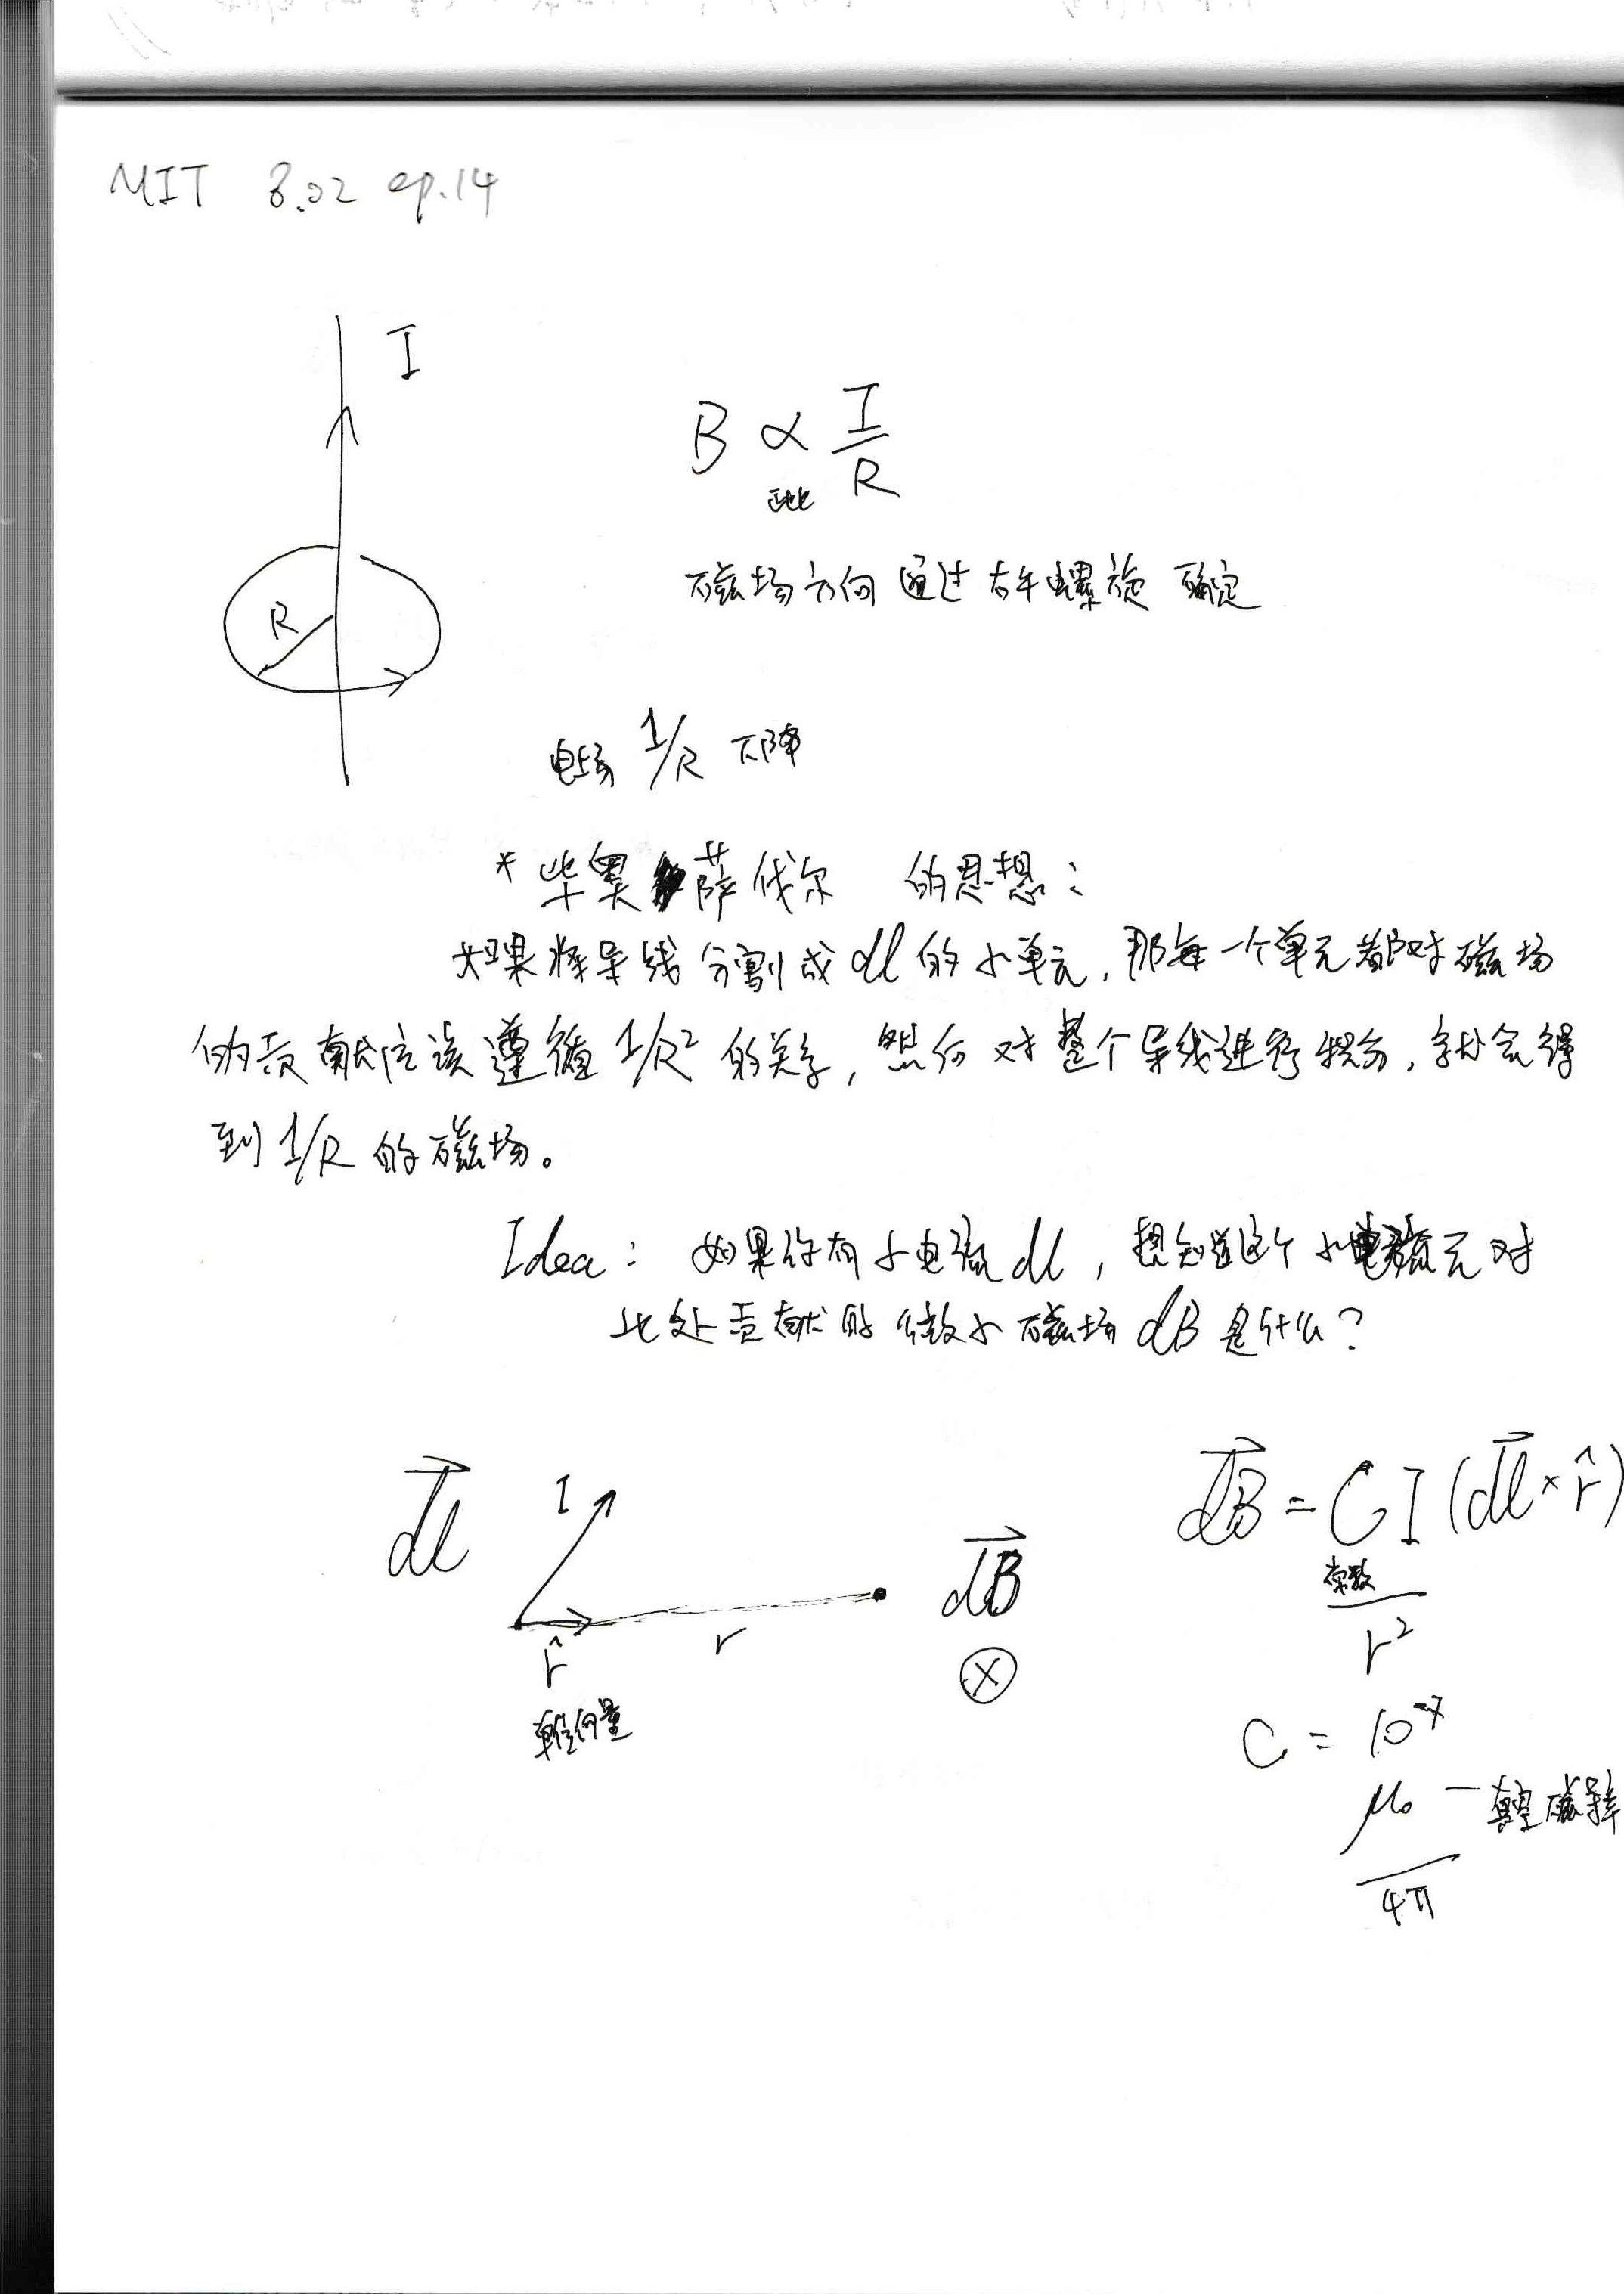 MIT 8.02 ep.14
I
B ∝ I/R
正比
磁场方向通过右手螺旋确定
R
电场 1/R 下降
* 毕奥萨伐尔 的思想：
如果将导线分割成 dl 的小单元，那每一个单元都对磁场
的贡献应该遵循 1/R² 的关系，然后对整个导线进行积分，就会得
到 1/R 的磁场。
Idea： 如果你有小电流 dl，想知道这个小电流元对
此处贡献的微小磁场 dB 是什么？
dl⃗ I r̂ r dB⃗ ⊗
单位向量
dB⃗ = C I (dl⃗ × r̂) / r²
常数
C = 10⁻⁷
μ₀/4π — 真空磁导率